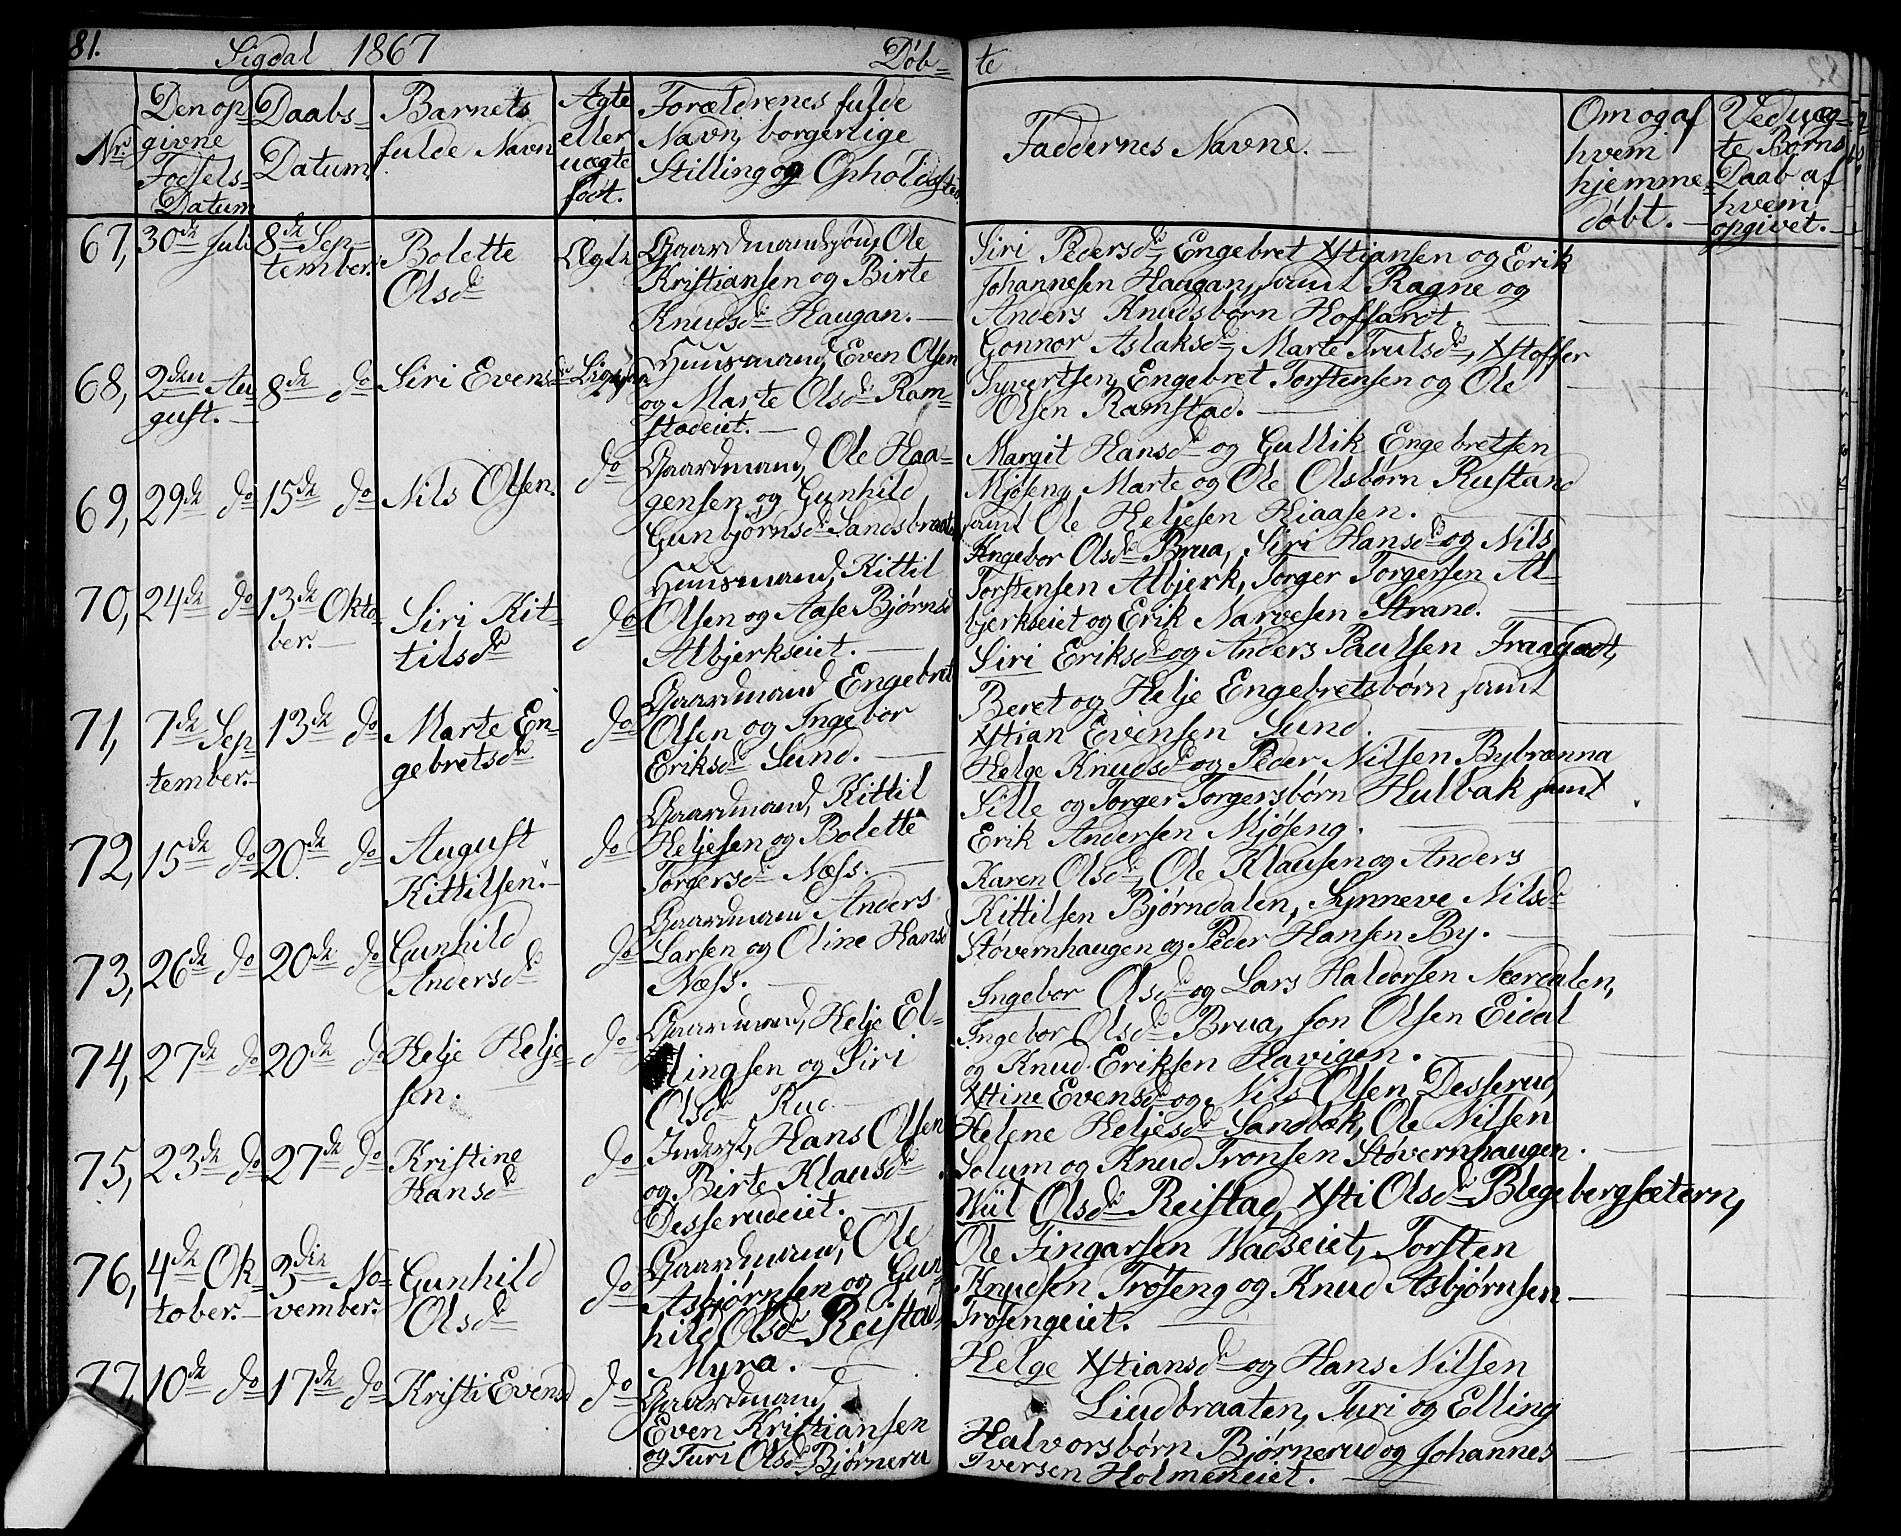 81. Sigdal 1867 Døb= te
Nr.
Den op=
givne
Fødsels=
Datum
Daabs=
Datum
Barnets
fulde Navn
Ægte
eller
uægte
født.
Forældrenes fulde
Navn, borgerlige
Stilling og Opholdssted
Faddernes Navne.
Om og af
hvem
hjemme=
døbt.
Ved uæg=
te Børns
Daab af
hvem
opgivet.
67, 30de Juli 8de Sep=
tember.
Bolette
Olsdr
Ægte
Gaardmandssøn, Ole
Kristiansen og Birte
Knudsdr Haugan.
Siri Pedersdr, Engebret Xstiansen og Erik
Johannesen Haugan, samt Ragne og
Anders Knudsbørn Hoffardt.
68, 2den Au=
gust. 8de do Siri Evensdr Ligesaa
Huusmand, Even Olsen
og Marte Olsdr Ram=
stadeiet.
Gonnor Aslaksdr, Marte Trulsdr, Xstoffer
Syvertsen, Engebret Torstensen og Ole
Olsen Ramstad.
69, 29de do 15de do Nils Olsen. do
Gaardmand, Ole Haa=
gensen og Gunhild
Gunbjørnsdr Sandsbraaten
Margit Hansdr og Gullik Engebretsen
Mjøseng, Marte og Ole Olsbørn Rustand
samt Ole Heljesen Kiaasen.
70, 24de do 13de Okto=
ber.
Siri Kit=
tilsdr
do
Huusmand, Kittil
Olsen og Aase Bjørnsd
Albjerkseiet.
Ingebor Olsdr Brua, Siri Hansdr og Nils
Torstensen Albjerk, Torger Torgersen Al=
bjerkseiet og Erik Narvesen Strand.
71, 7de Sep
tember. 13de do
Marte En=
gebretsdr
do
Gaardmand Engebret
Olsen og Ingebor
Eriksdr Lund.
Siri Eriksdr og Anders Paulsen Fraagardt,
Beret og Helje Engebretsbørn samt
Xstian Evensen Lund.
72, 15de do 20de do
August
Kittilsen.
do
Gaardmand, Kittil
Heljesen og Bolette
Torgersdr Næss.
Helge Knudsdr og Peder Nilsen Bybrænna
Sille og Torger Torgersbørn Hulbak samt
Erik Andersen Mjøseng.
73, 26de do 20de do
Gunhild
Andersdr
do
Gaardmand Anders
Larsen og Oline Hansd
Næss.
Karen Olsdr, Ole Klausen og Anders
Kittilsen Bjørndalen, Synneve Nilsdr
Støvernhaugen og Peder Hansen By.
74, 27de do 20de do
Helje Helje=
sen.
do
Gaardmand, Helje El=
lingsen og Siri
Olsdr Rud
Ingebor Olsdr og Lars Haldorsen Nærdalen,
Ingebor Olsdr Brua, Jon Olsen Eidal
og Knud Eriksen Havigen.
75, 23de do 27de do
Kristine
Hansdr
do
Inderst, Hans Olsen
og Birte Klausdr
Desserudeiet.
Xstine Evensdr og Nils Olsen Desserud,
Helene Heljesdr Sandbæk, Ole Nilsen
Solum og Knud Tronsen Støvernhaugen.
76, 4de Ok=
tober. 3die No=
vember.
Gunhild
Olsdr
do
Gaardmand, Ole
Asbjørnsen og Gun=
hild Olsdr Reistad,
Myra.
Wiil Olsdr Reistad, Xsti Olsdr Blegebergsætern,
Ole Fingarsen Hadseiet, Torsten
Knudsen Trøseng og Knud Asbjørnsen
Trøsengeiet.
77, 10de do 17de do Kristi Evensd do
Gaardmand,
Even Kristiansen
og Turi Olsdr Bjørnerud
Helge Xstiansdr og Hans Nilsen
Lindbraaten, Turi og Elling
Halvorsbørn Bjørnerud og Johannes
Iversen Holmeneiet.